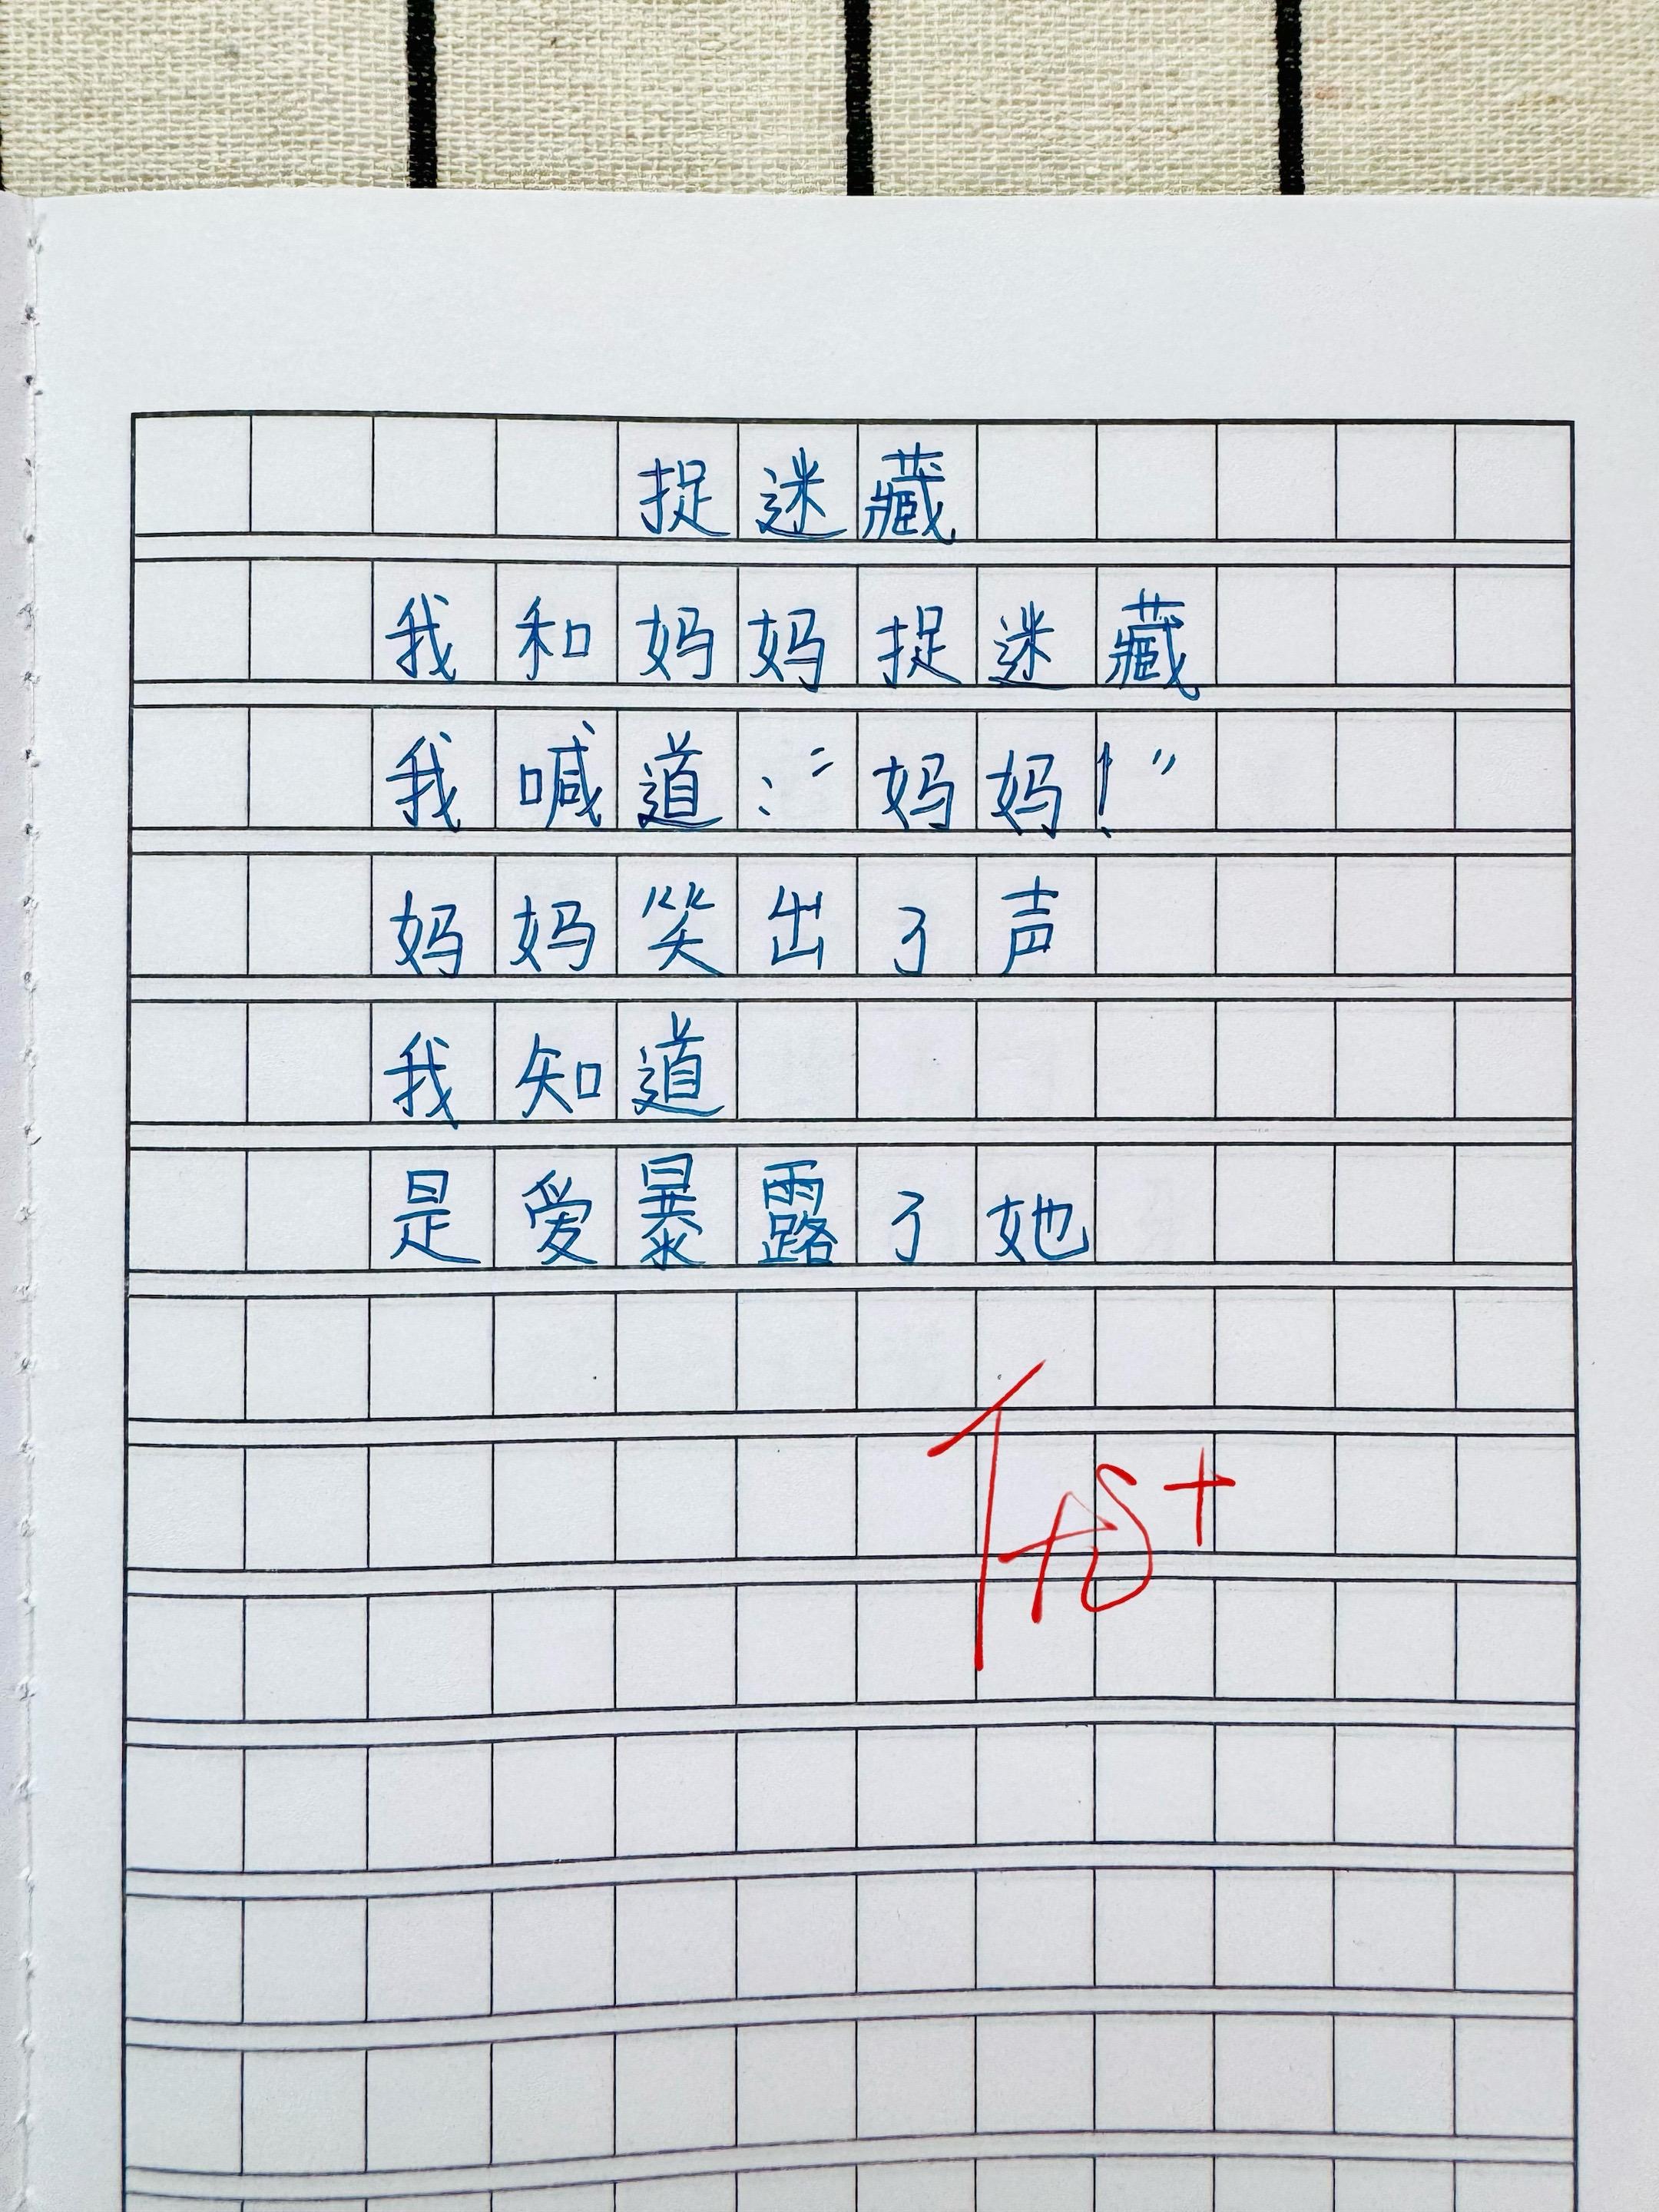 捉迷藏
我和妈妈捉迷藏
我喊道:“妈妈!”
妈妈笑出了声
我知道
是爱暴露了她